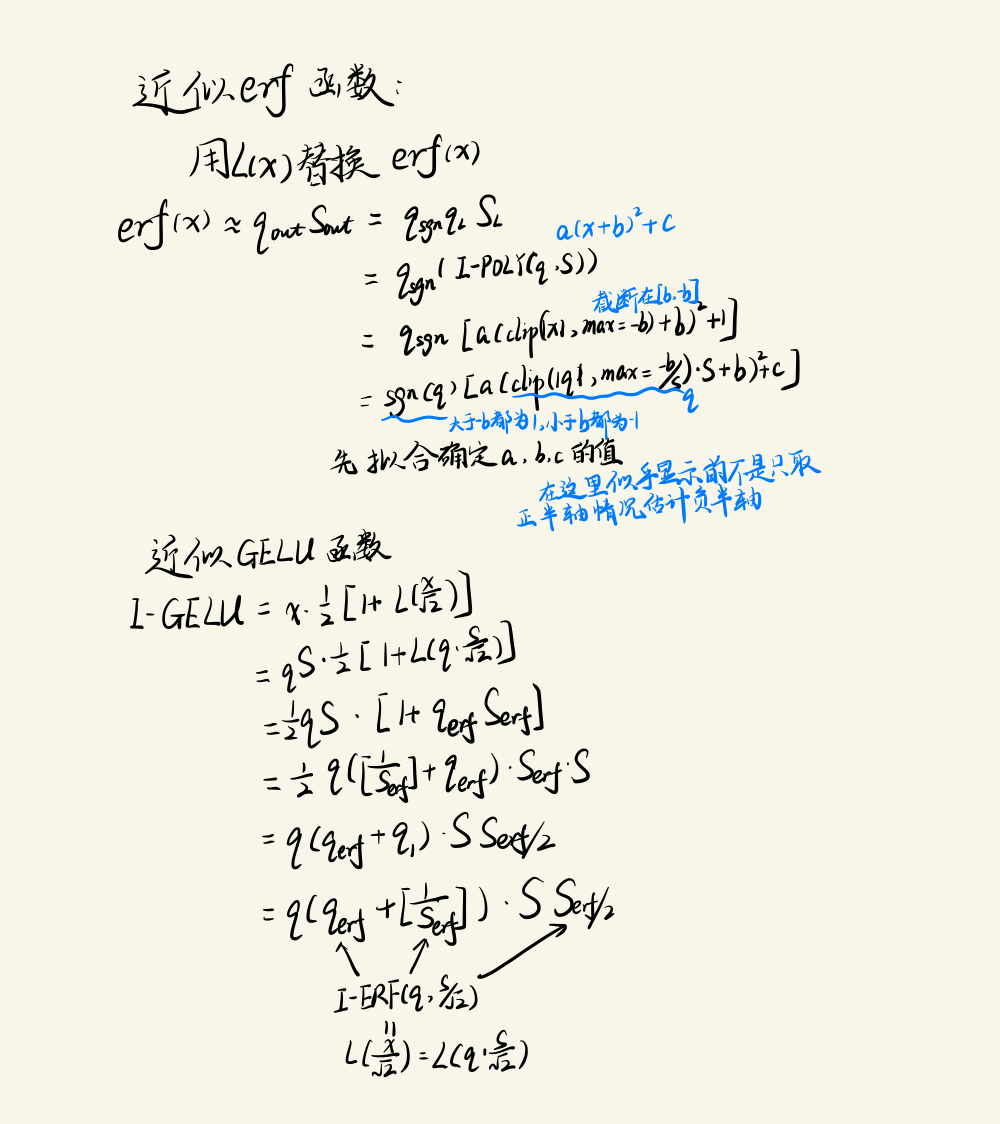 近似erf函数:
用L(x)替换 erf(x)
erf(x) ≈ q_out S_out = q_sgn q_L S_L
a(x+b)²+c
= q_sgn( I-POLY(q,S))
截断在[b,-b]
= q_sgn [a(clip(|x|, max=-b)+b)²+1]
= sgn(q)[a(clip(|q|, max=-b/S)·S+b)²+c]
q
大于-b都为1,小于b都为-1
先拟合确定a,b,c的值
在这里似乎显示的不是只取
正半轴情况估计负半轴
近似GELU函数
I-GELU = x·½[1+L(x/√2)]
= qS·½[1+L(q·S/√2)]
=½qS·[1+q_erf S_erf]
=½ q([1/S_erf]+q_erf)·S_erf·S
= q(q_erf+q₁)·S S_erf/2
= q(q_erf+[1/S_erf])·S S_erf/2
I-ERF(q, S/√2)
=
L(x/√2)=L(q·S/√2)